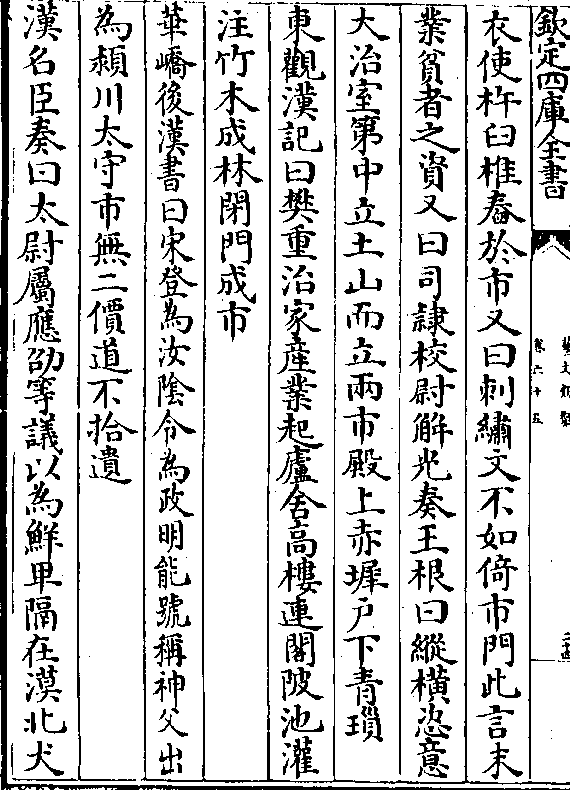 欽定四庫全書
藝文類聚
卷六十五
衣使杵臼椎舂於市又曰刺繡文不如倚市門此言末
業貧者之資又曰司隸校尉解光奏王根曰縱橫恣意
大治室第中立土山而立兩市殿上赤墀户下青瑣
東觀漢記曰樊重治家產業起廬舍高樓連閣陂池灌
注竹木成林閉門成市
華嶠後漢書曰宋登為汝陰令為政明能號稱神父出
為潁川太守市無二價道不拾遺
漢名臣奏曰太尉屬應劭等議以為鮮卑隔在漠北犬